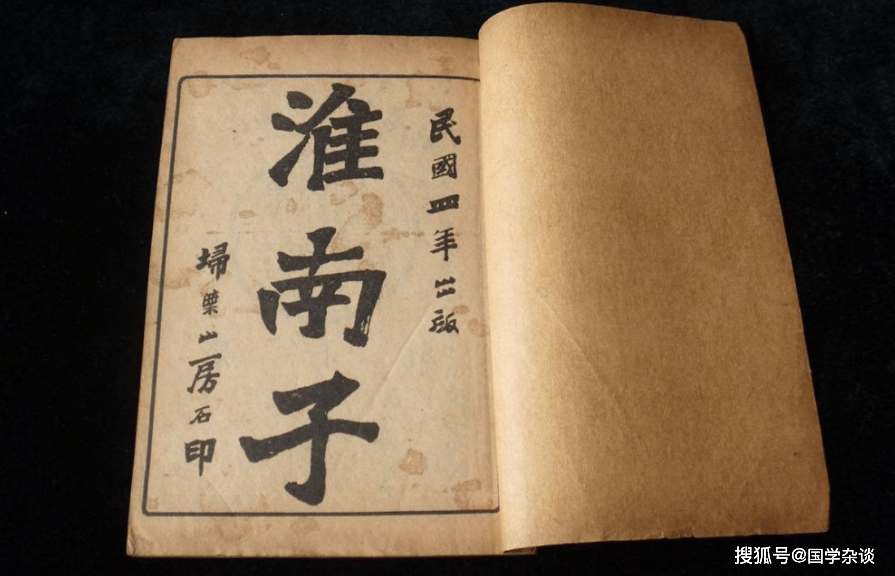 民國四年出版
淮南子
埽葉山房石印
搜狐号@国学杂谈